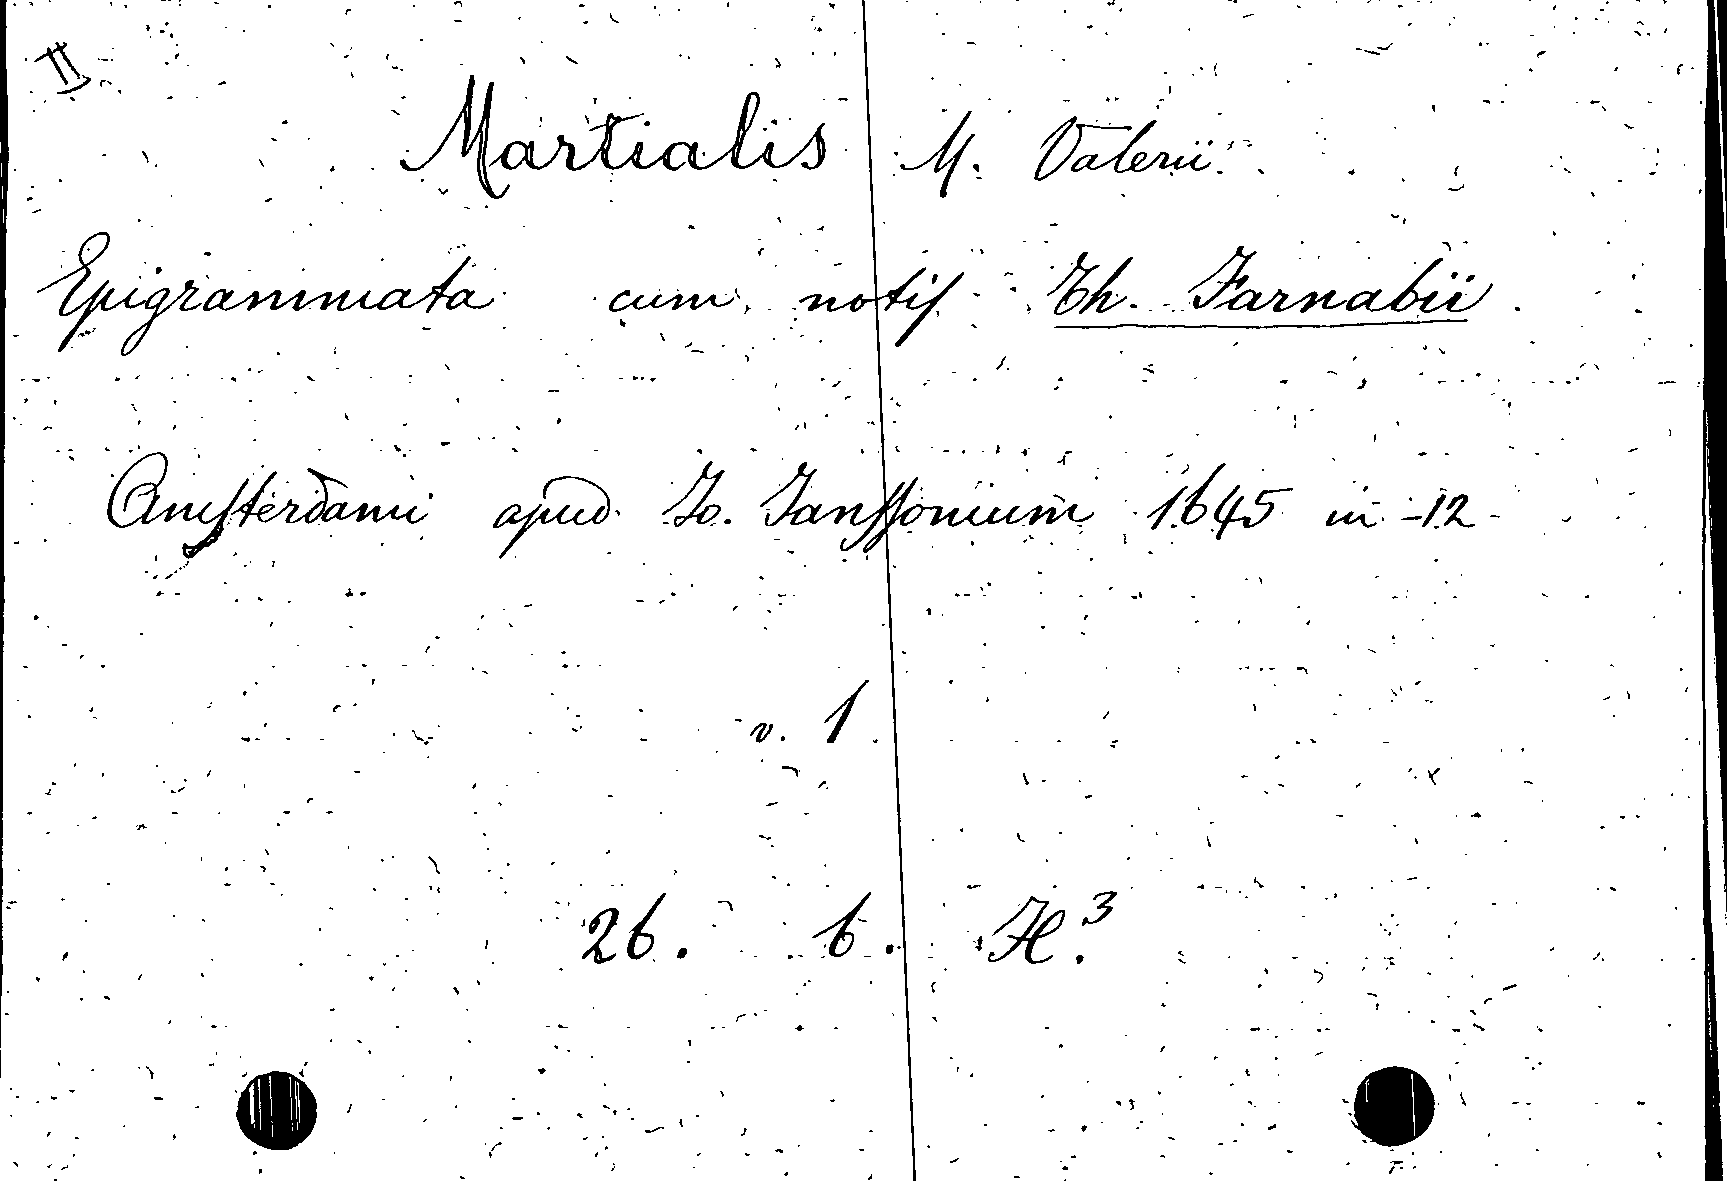 II
Martialis M. Valerii
Epigrammata cum notis Th. Farnabii
Amsterdami apud Jo. Janssonium 1645 in -12
v. 1
26. 6. H.³